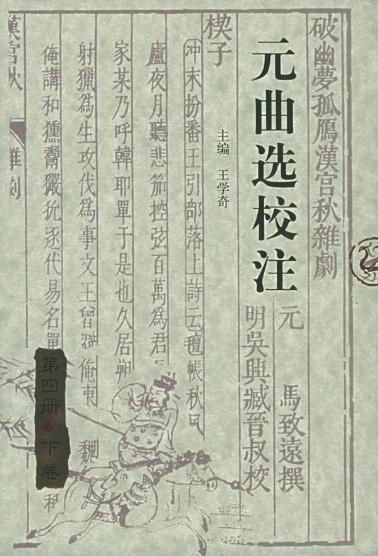 元曲选校注
主编 王学奇
第四册·下卷
破幽夢孤鴈漢宮秋雜劇
元 馬致遠撰
明吳興臧晉叔校
楔子
冲末扮番王引部落上詩云氊帳秋風
廬夜月聽悲笳控弦百萬為君
家某乃呼韓耶單于是也久居朔
射獵為生攻伐為事文王曾 俺東 魏
俺講和獯鬻獫狁逐代易名單 和
漢宮秋
雜劇